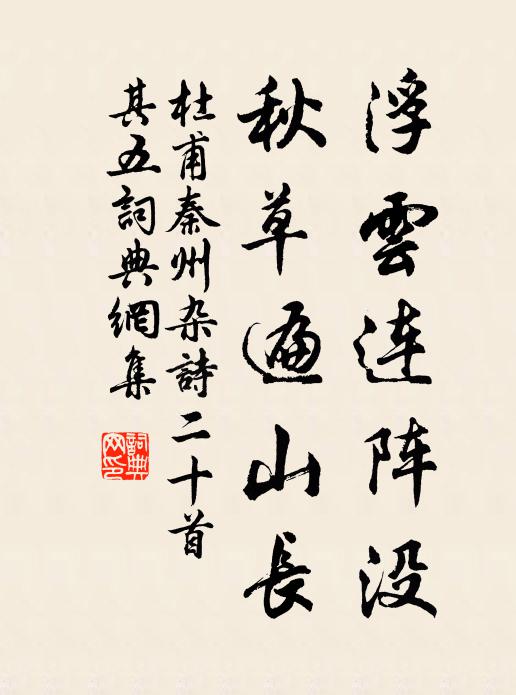 浮雲連阵没
秋草遍山長
杜甫秦州杂詩二十首
其五詞典網集
詞典网印